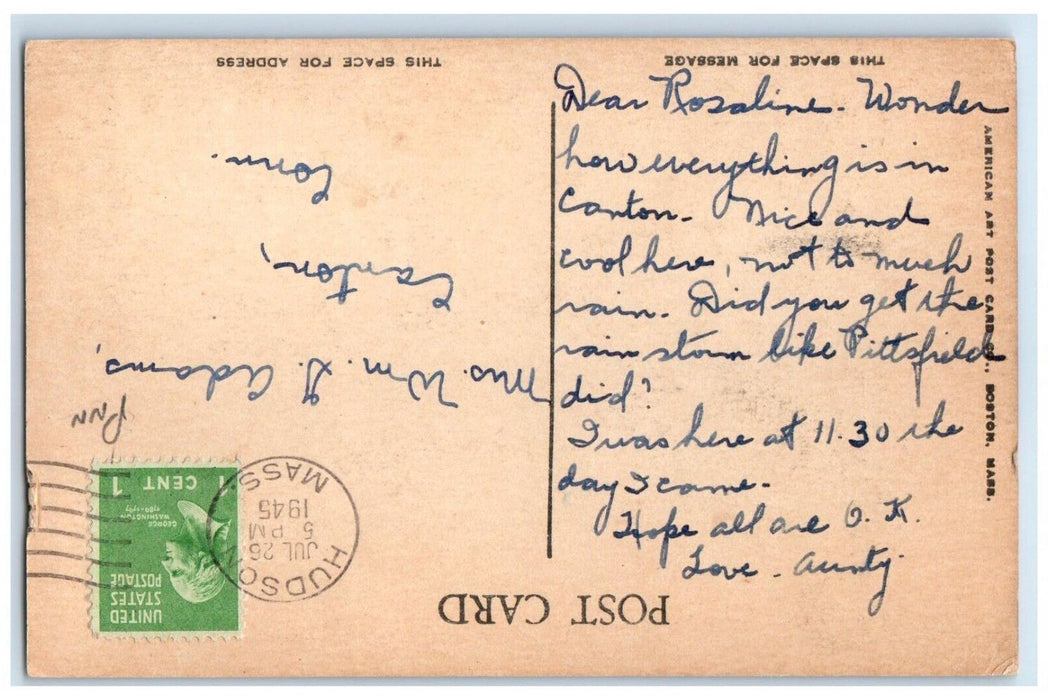 THIS SPACE FOR MESSAGE
THIS SPACE FOR ADDRESS
Dear Rosaline - Wonder
how everything is in
Canton - Nice and
cool here, not to much
rain. Did you get the
rain storm like Pittsfield
did?
I was here at 11.30 the
day I came.
Hope all are O.K.
Love - Aunty
AMERICAN ART POST CARD CO., BOSTON, MASS.
POST CARD
Mrs. Wm. G. Adams,
Canton,
Conn.
HUDSON
JUL 26
5 PM
1945
MASS.
UNITED
STATES
POSTAGE
GEORGE
WASHINGTON
1789-1797
1 CENT 1